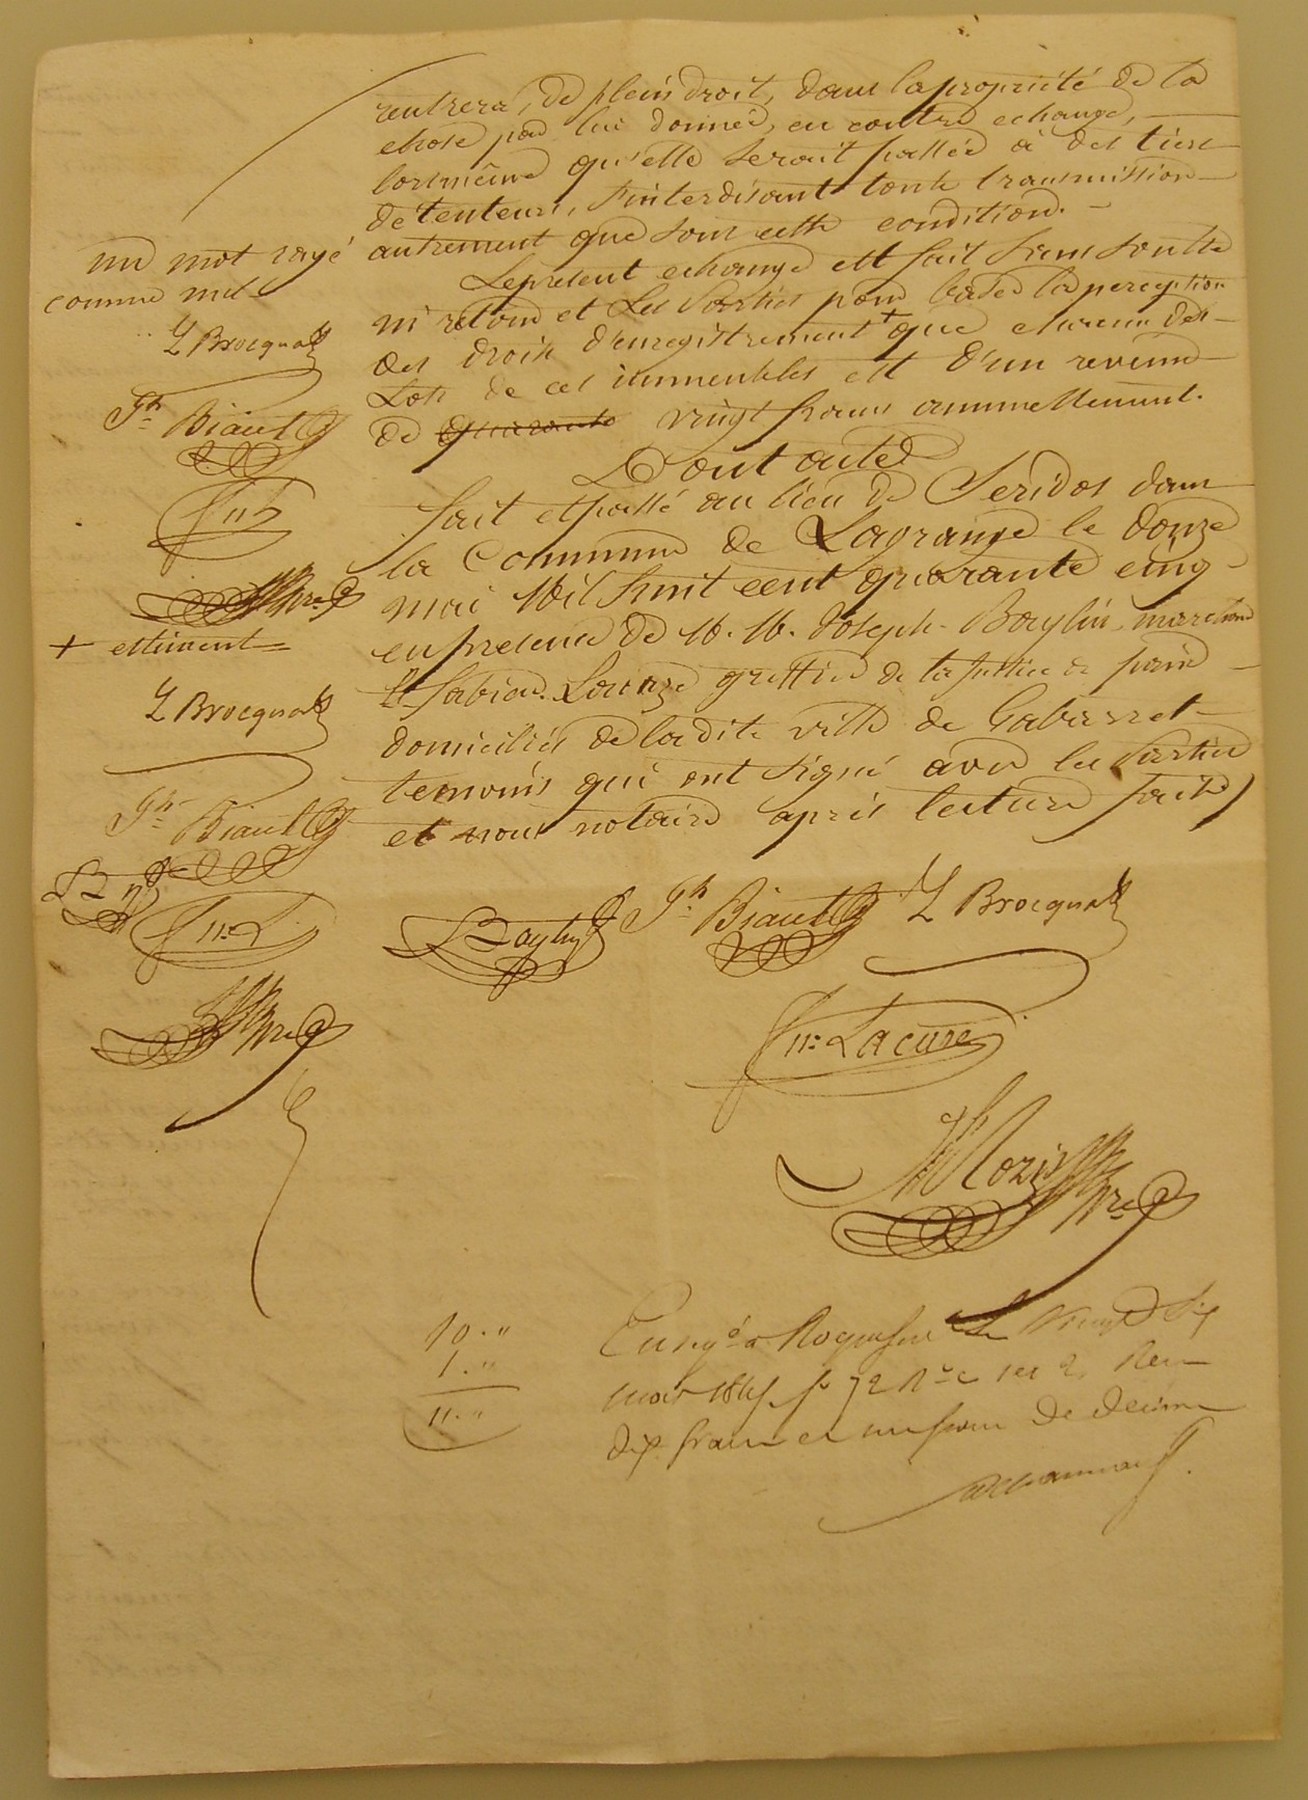 rentrera, de plein droit, dans la propriété de la
chose par lui donnée, en contre echange,
lors même qu'elle serait passée à des tiers
détenteurs, s'interdisant toute transmission
autrement que sous cette condition.
Le présent echange est fait sans soulte
ni retour et les Parties pour baser la perception
des droits d'enregistrement + que chacun des
Lots de ces immeubles est d'un revenu
de quarante vingt francs annuellement.
Dont acte
fait et passé au lieu de Seridos dans
la Commune de Lagrange le douze
mai Mil huit cent quarante cinq
en présence de M. M. Joseph Baylin marchand
et fabien Lacaze greffier de la justice de paix
domiciliés de la dite ville de Gabarret
temoins qui ont signé avec les Parties
et nous notaire après lecture faite
un mot rayé
comme nul
Z Brocqua
Jh Biaut
+ estiment
Z Brocqua
Jh Biaut
Bayliy
Jh Biaut
Z Brocqua
Lacaze
10."
1."
11."
Enregé à Roquefort le vingt six
mai 1845 fo 72 Ro c 1 et 2, Reçu
dix francs et un franc de décime